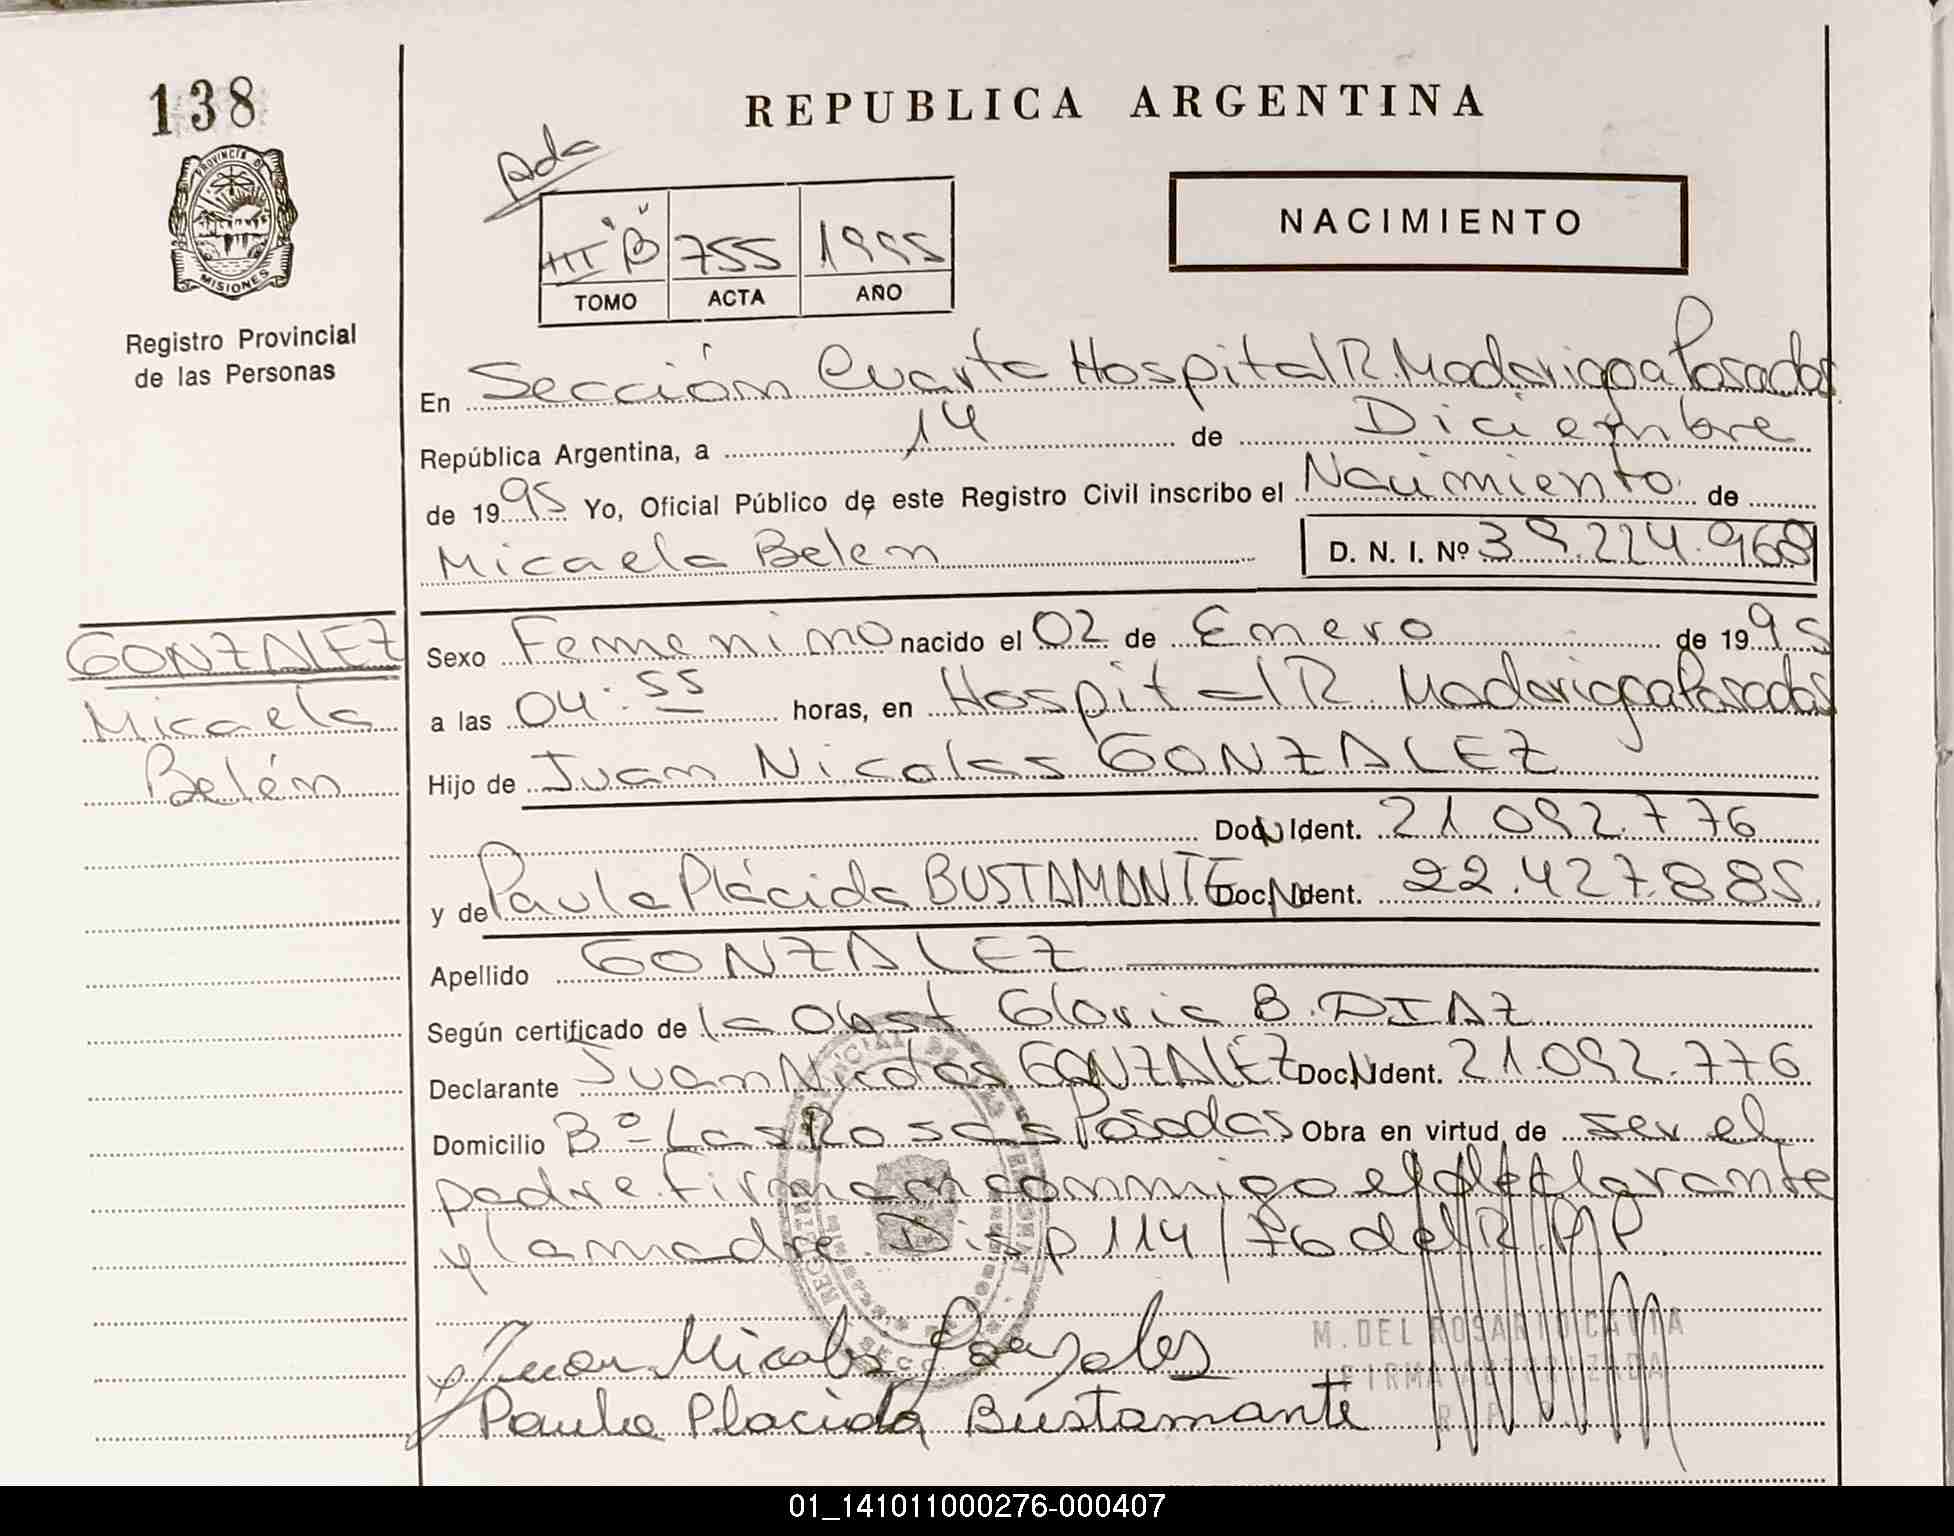 138
REPUBLICA ARGENTINA
PROVINCIA DE
MISIONES
Registro Provincial
de las Personas
NACIMIENTO
III "B" 755 1995
TOMO ACTA AÑO
En Sección Cuarta Hospital R. Madariaga Posadas
República Argentina, a 14 de Diciembre
de 1995 Yo, Oficial Público de este Registro Civil inscribo el Nacimiento de
Micaela Belen D. N. I. Nº 39.224.968
GONZALEZ
Micaela
Belén
Sexo Femenino nacido el 02 de Enero de 1995
a las 04:55 horas, en Hospital R. Madariaga Posadas
Hijo de Juan Nicolas GONZALEZ
Doc. Ident. 21.092.776
y de Paula Plácida BUSTAMANTE Doc. Ident. 22.427.885
Apellido GONZALEZ
Según certificado de la Obst Gloria B. DIAZ
Declarante Juan Nicolas GONZALEZ Doc. Ident. 21.092.776
Domicilio Bº Las Rosas Posadas Obra en virtud de ser el
padre. Firman conmigo el declarante
y la madre. Disp 114/76 del R.P.P.
Juan Nicolas Gonzales
Paula Placida Bustamante
M. DEL ROSARIO
FIRMA AUTORIZADA
01_141011000276-000407